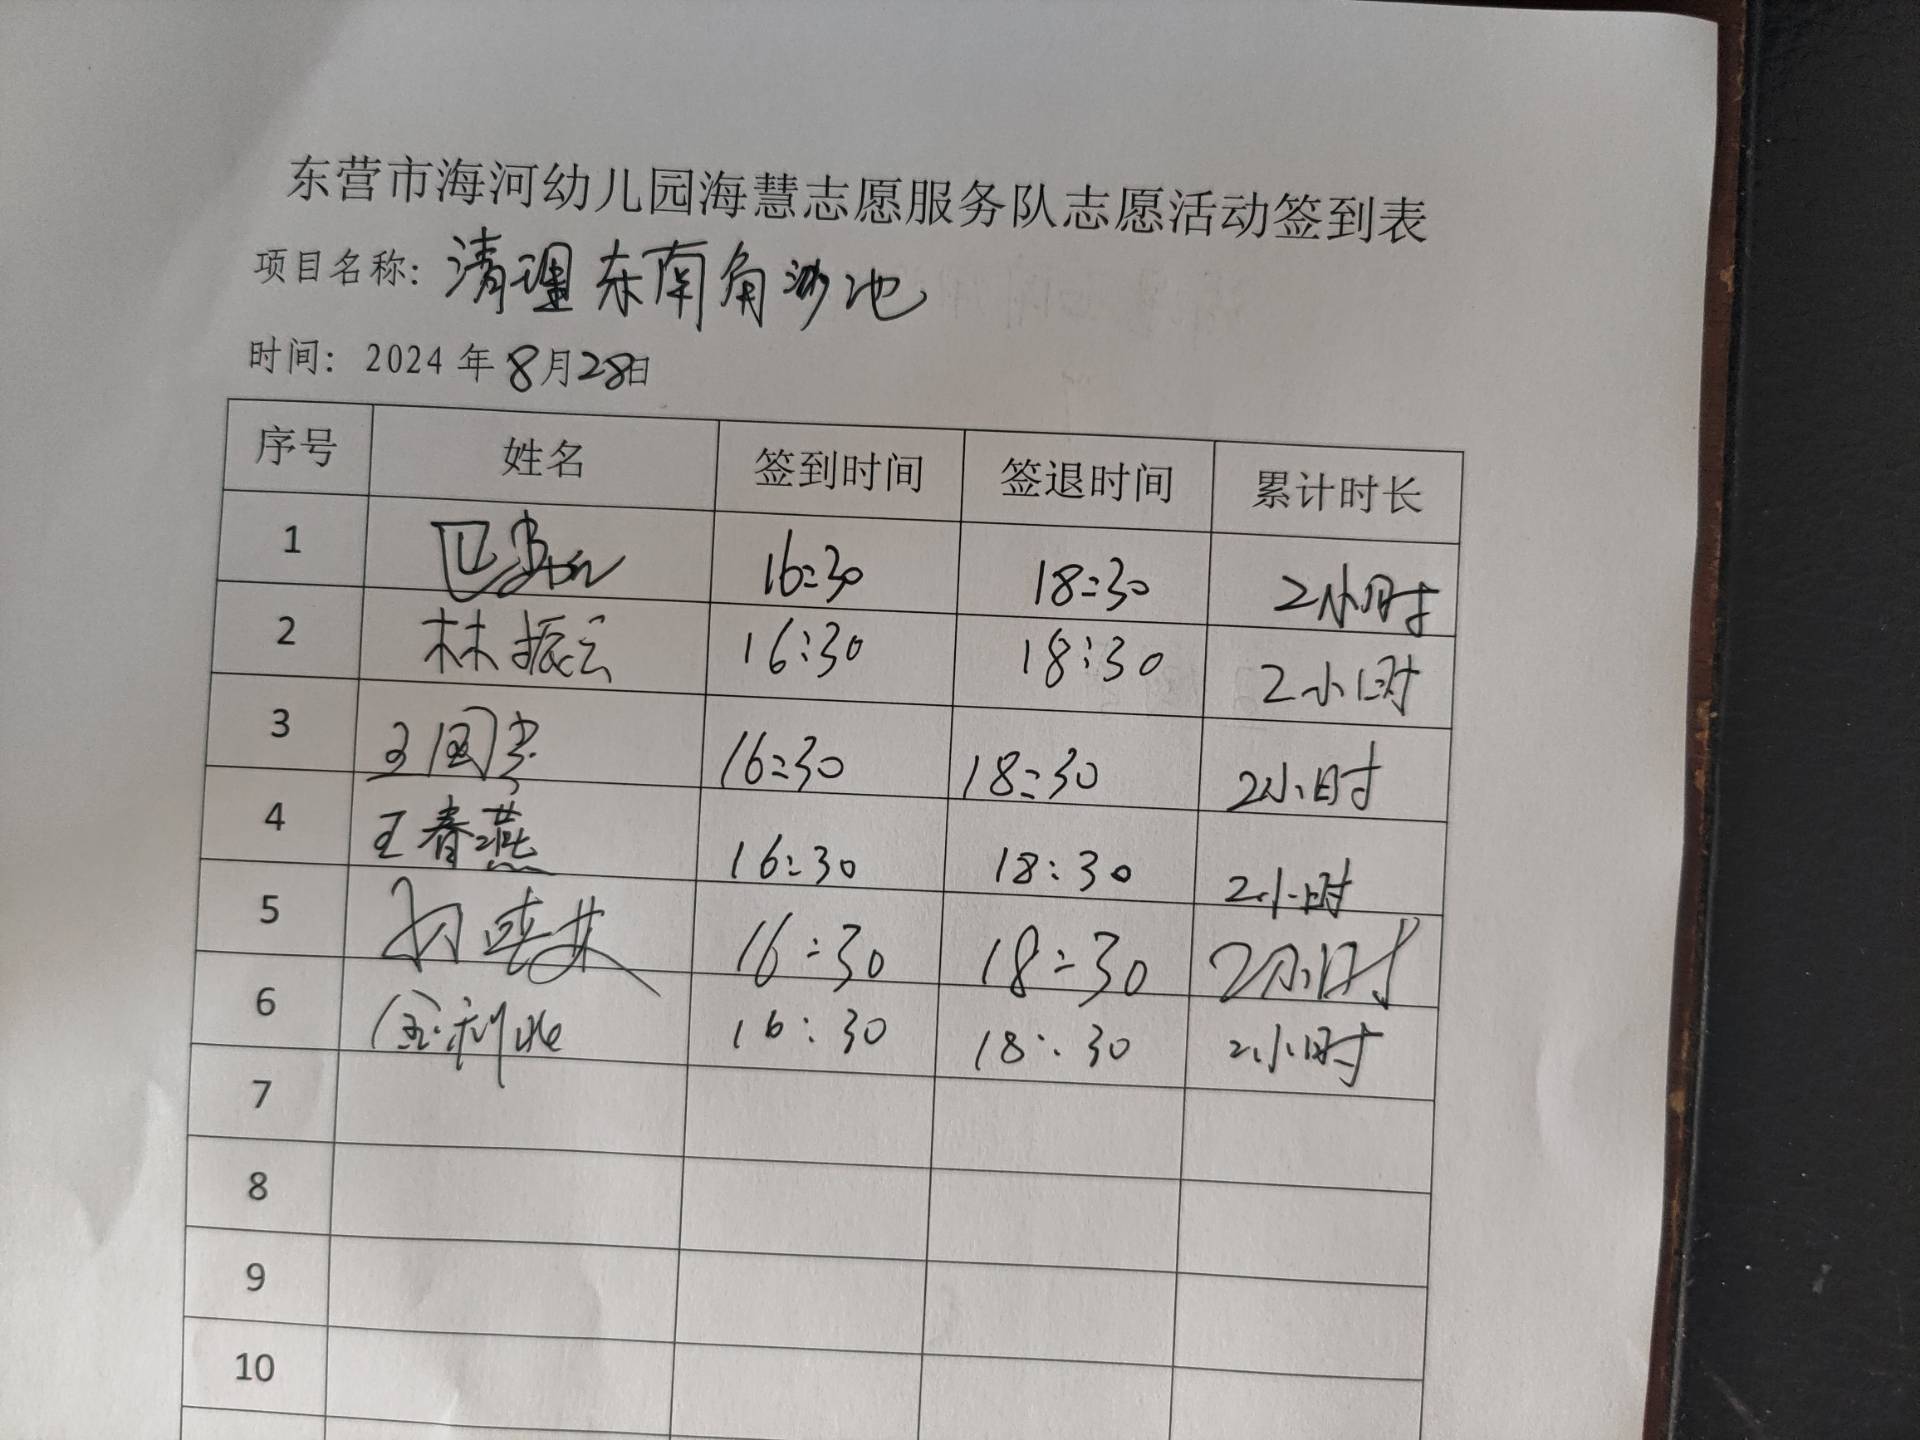 东营市海河幼儿园海慧志愿服务队志愿活动签到表
项目名称：清理东南角沙池
时间：2024年8月28日
序号 姓名 签到时间 签退时间 累计时长
1 16:30 18:30 2小时
2 林振云 16:30 18:30 2小时
3 王国 16:30 18:30 2小时
4 王春燕 16:30 18:30 2小时
5 16:30 18:30 2小时
6 金利 16:30 18:30 2小时
7
8
9
10